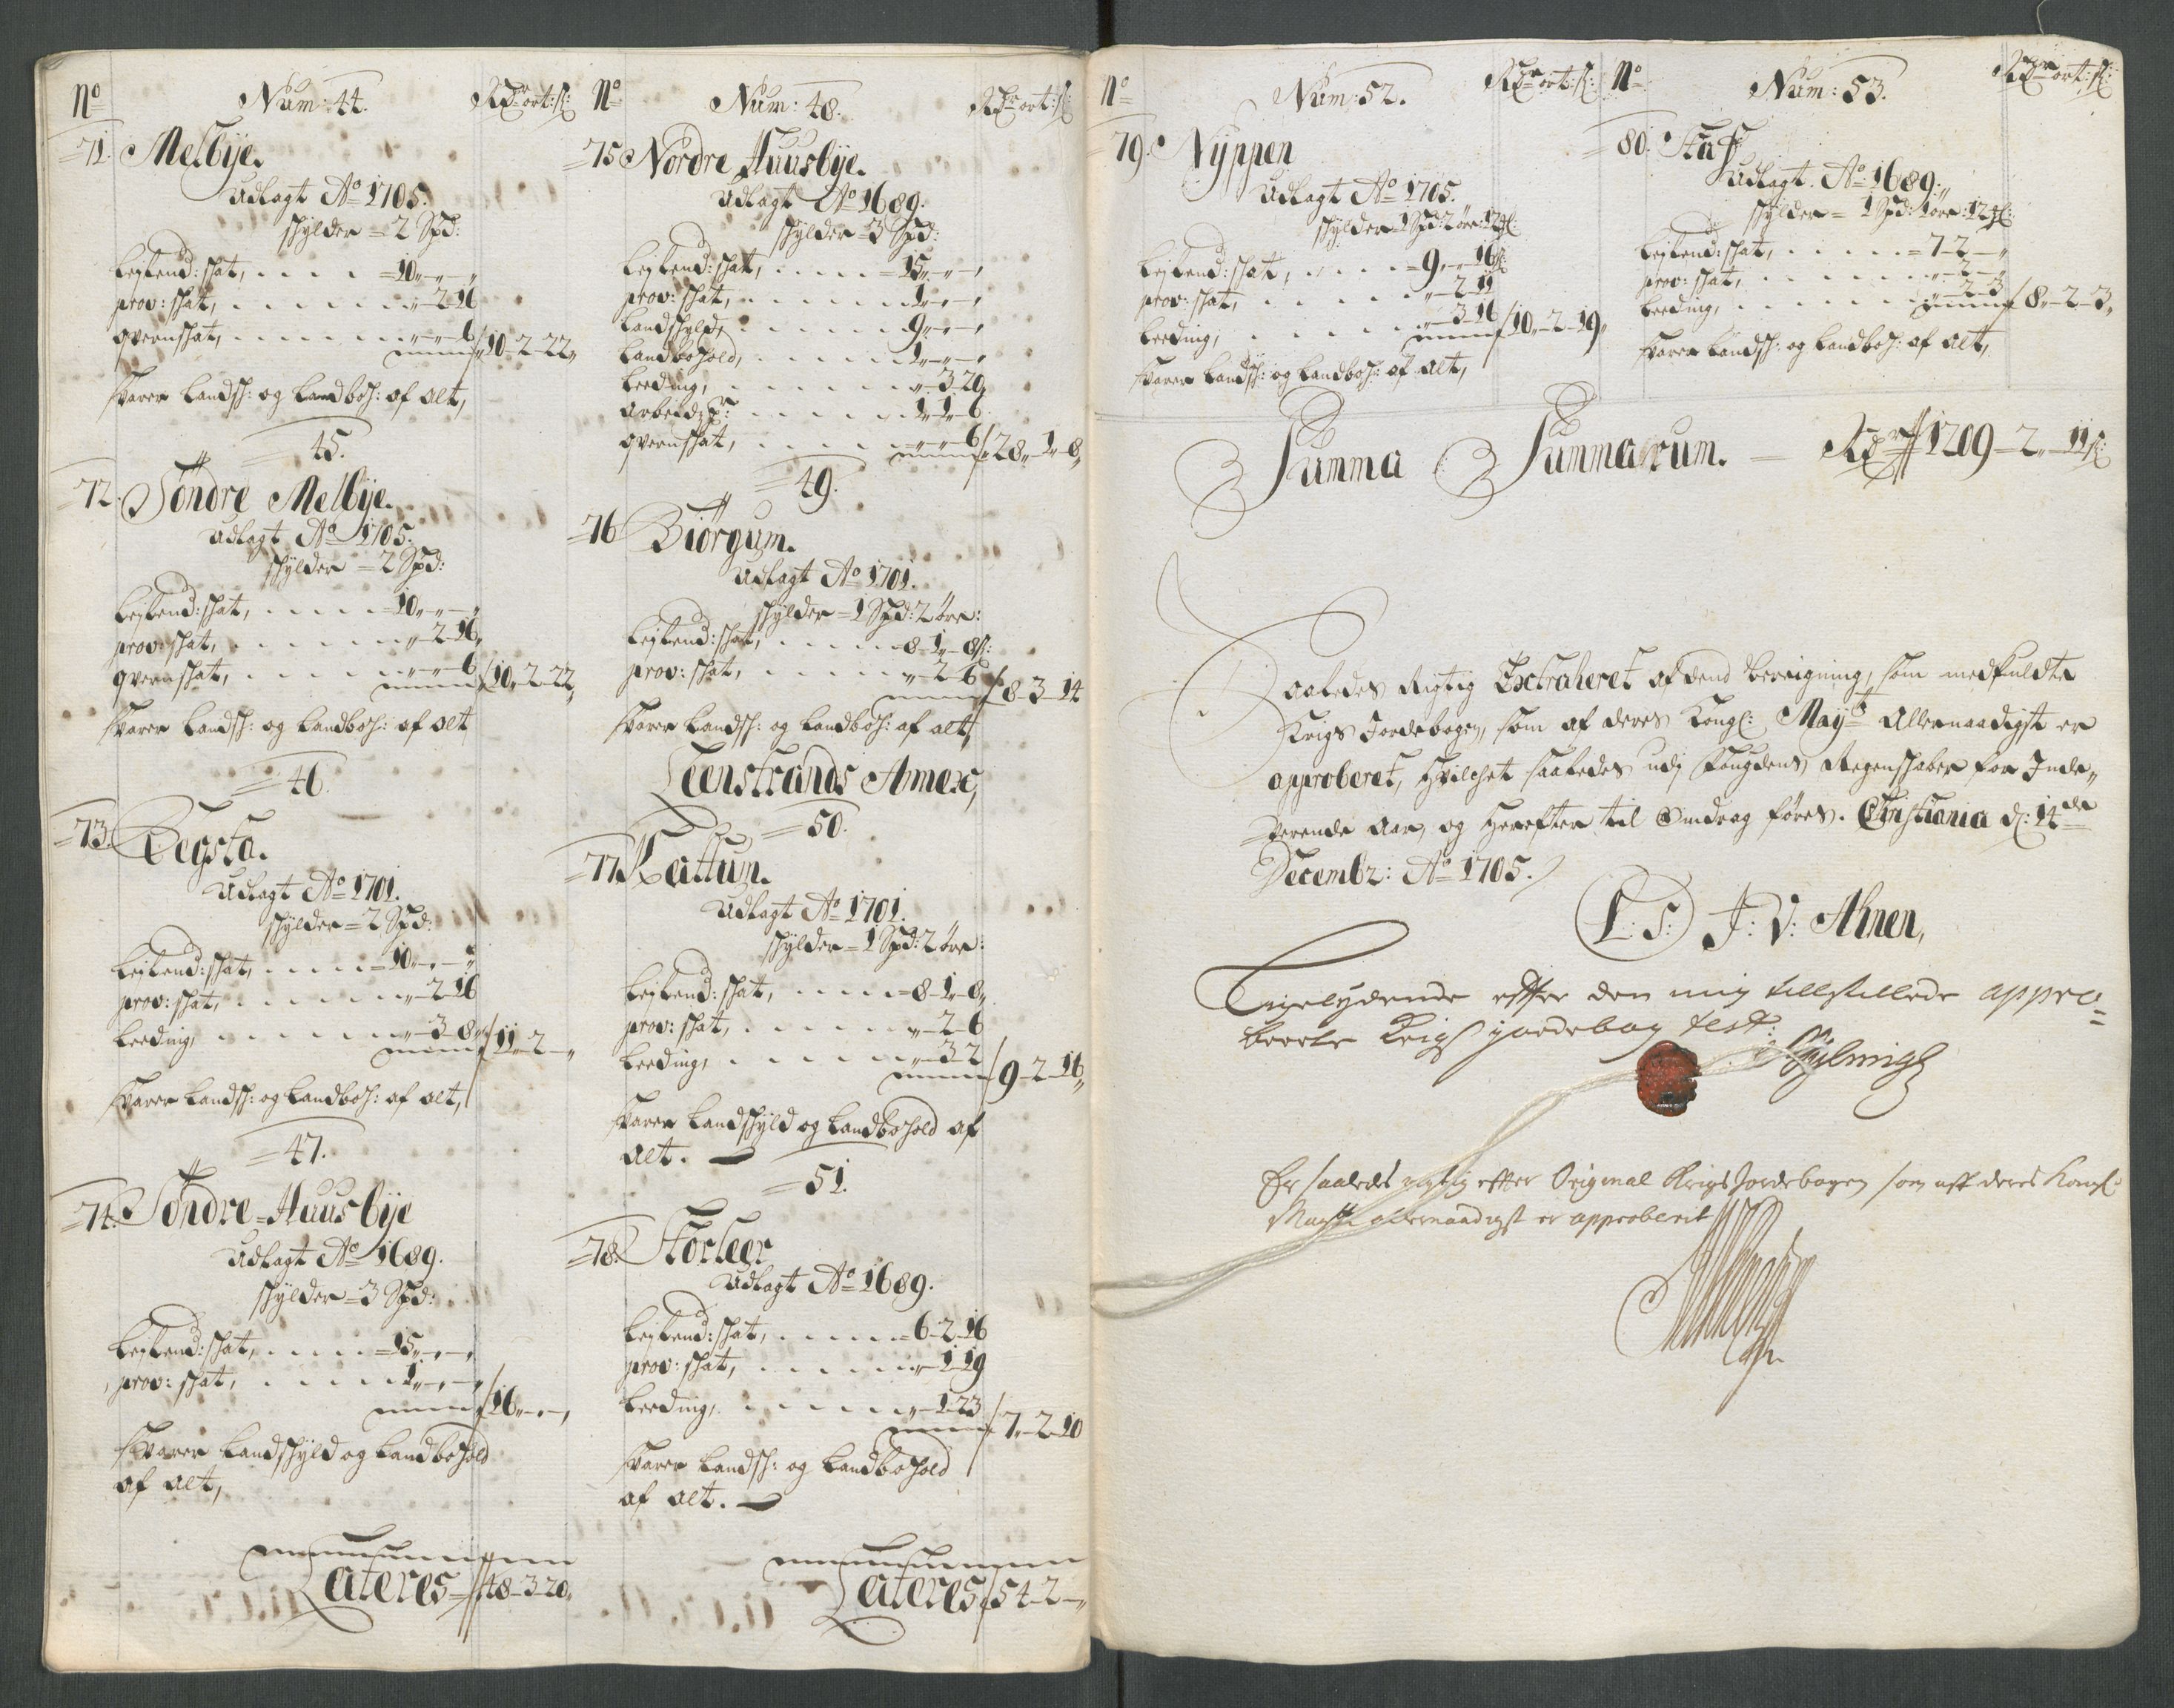 No Num: 44. Rdr ort: s:
71. Melbÿe.
Udlagt Ao 1705.
skÿlder = 2 Spd:
Leilend: skat, . . . . =10„-„-„
prov: skat, . . . . „-2-16
qvernskat, . . . . „-„-6 / 10-2-22„
svarer Landsk: og Landboh: af alt,
45.
72. Söndre Melbÿe.
Udlagt Ao 1705.
skÿlder = 2 Spd:
Leilend: skat, . . . . =10„-„-„
prov: skat, . . . . „-2-16„
qvernskat, . . . . „-„-6 / 10„-2-22„
svarer Landsk: og Landboh: af alt
46.
73. Begsta.
Udlagt Ao 1701.
skÿlder = 2 Spd:
Leilend: skat, . . . . =10„-„-„
prov: skat, . . . . „-2-16
Leeding, . . . . „-3-8„ / 11„-2-„
svarer Landsk: og Landboh: af alt,
47.
74. Söndre-Huusbÿe
Udlagt Ao 1689.
skÿlder = 3 Spd:
Leilend: skat, . . . . =15„-„-„
prov: skat, . . . . 1„-„-„
/ 16„-„-„
svarer Landskÿld og Landbohold
af alt,
Lateres = 48-3-20„
No Num: 48. Rdr ort: s:
75 Nordre Huusbÿe.
Udlagt Ao 1689.
skÿlder = 3 Spd:
Leilend: skat, . . . . =15„-„-„
prov: skat, . . . . 1„-„-„
Landskyld, . . . . 9„-„-„
Landbohold, . . . . 1„-„-„
Leeding, . . . . „-3-20„
arbeidzp: . . . . 1„-1„-6
qvernskat, . . . . „-„-6 / 28„-1„-8„
49.
76 Biörgum.
Udlagt Ao 1701.
skÿlder = 1 Spd: 2 öre:
Leilend: skat, . . . . =8-1„-8s:
prov: skat, . . . . „-2-6
/ 8-3-14
svarer Landsk: og Landboh: af alt,
Leenstrands Annex,
50.
77. Kattum.
Udlagt Ao 1701.
skÿlder = 1 Spd: 2 öre:
Leilend: skat, . . . . =8-1-8„
prov: skat, . . . . „-2-6
Leeding, . . . . „-3-2 / 9-2-16„
svarer Landskÿld og Landbohold af
alt.
51.
78. Storleer
Udlagt Ao 1689.
Leilend: skat, . . . . =6-2-16
prov: skat, . . . . „-1-19
Leeding, . . . . „-1-23 / 7„-2-10
svarer Landsk: og Landbohold
af alt.
Lateres / 54-2-„
No Num: 52. Rdr ort: s:
79. Nÿppen
Udlagt Ao 1705.
skÿlder = 1 Spd: 2 öre: 12 gl:
Leilend: skat, . . . . =9„-„-16s:
prov: skat, . . . . „-2-11
Leeding, . . . . „-3-16 / 10„-2-19„
svarer Landsk: og Landboh: af alt,
No Num: 53. Rdr ort: s:
80.
Udlagt Ao 1689„
skÿlder = 1 Spd: 1 öre: 12 gl:
Leilend: skat, . . . . =7-2-„
prov: skat, . . . . „-2-„
Leeding, . . . . „-2-3 / 8„-2-3„
svarer Landsk: og Landboh: af alt,
Summa Summarum. — Rdr 1209-2„-11s:
Saaledes Rigtig Extraheret af dend Bereigning, som medfuldte
Krigs Jordebogen, som af deres Kongl: Mayts Allernaadigst er
approberet, Hvilchet saaledes udj Fougdens Regenskaber for Inde„
verende Aar, og Herefter til Omdrag föres. Christiania d: 14de
Decembr: Ao 1705.
L: S: J: V: Ahnen,
Ligelydende efter den mig tillstillede appro=
berete Krigs jordebog test:
Er saaledes rigtig efter Original Krigs Jordebogen som aff deres Kongl:
Maytt allernaadigst er approberit